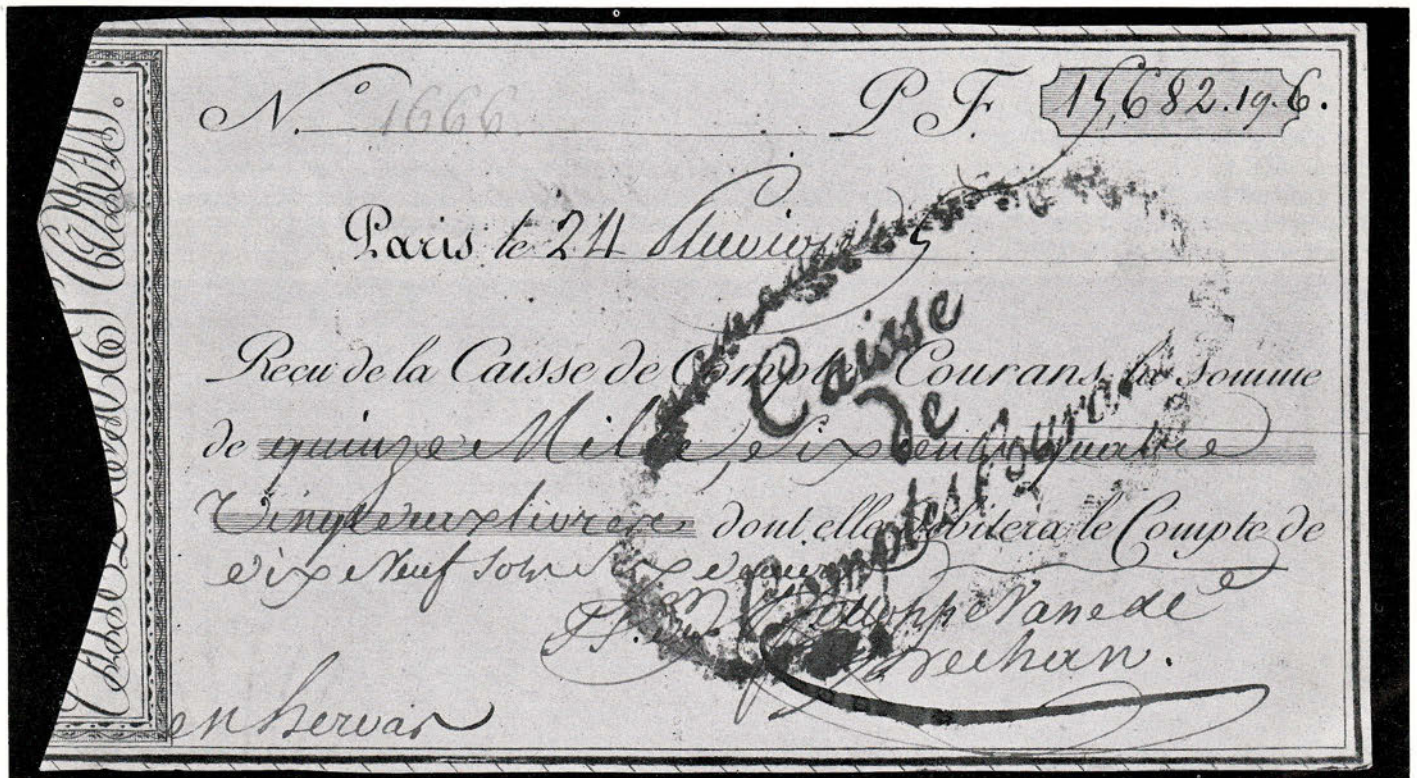 N.° 1666. P F. 15,682.19.6.
Paris le 24 Pluviose 5
Reçu de la Caisse de Comptes Courans, la somme
de quinze Mille, Six cent quatre
Vingt deux livres dont elle débitera le Compte de
dix Neuf Sols Six deniers
Caisse
de
Comptes Courans